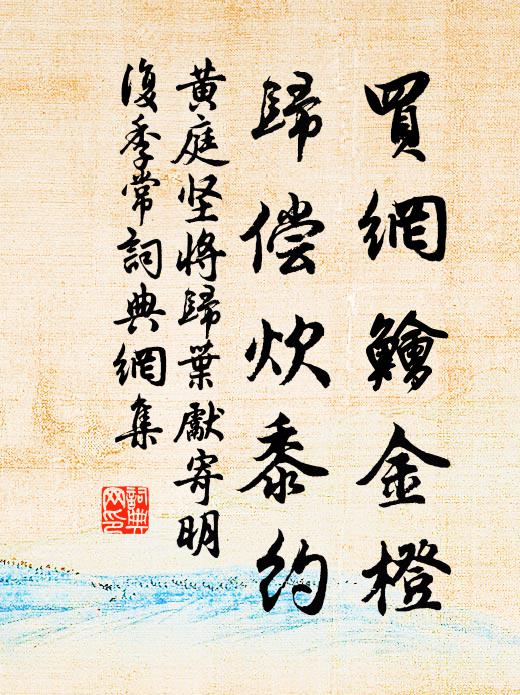 買網鱠金橙
歸偿炊黍約
黄庭坚將歸葉獻寄明
復季常詞典網集
詞典
网印